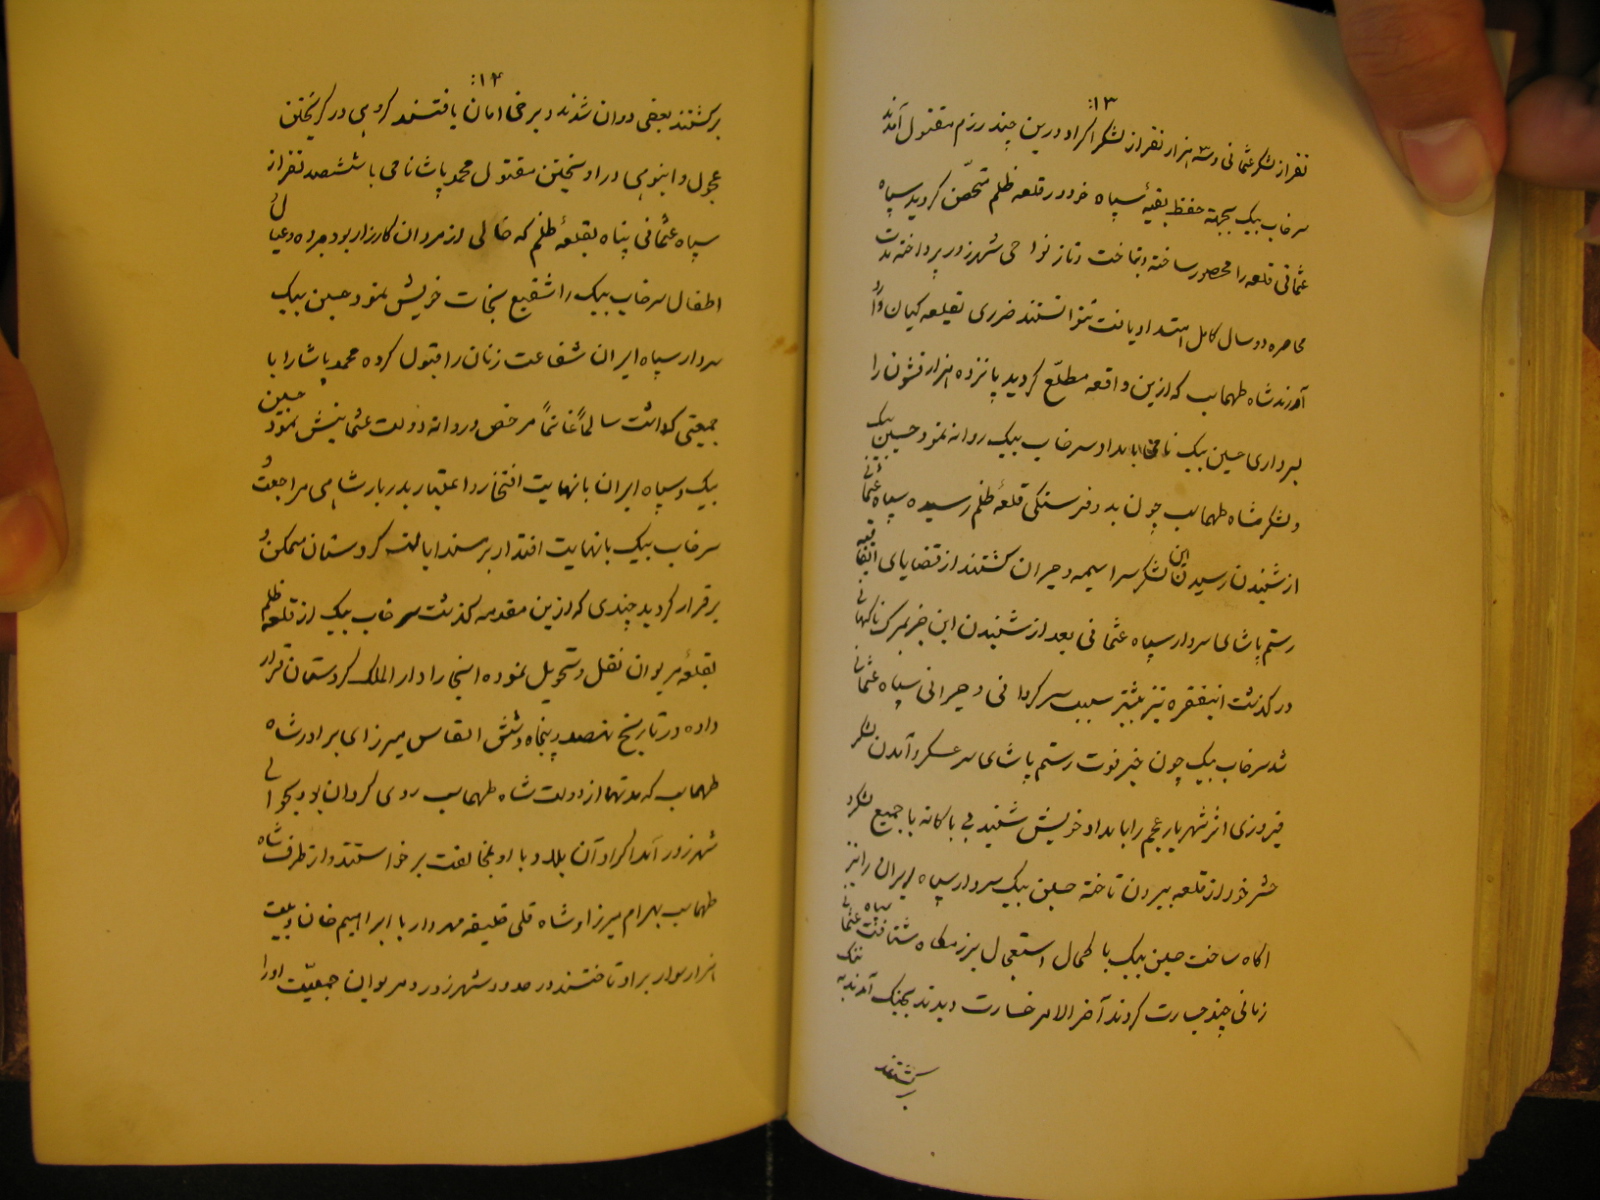 :۱۳
نفر از لشکر عثمانی و سه هزار نفر از لشکر اکراد درین چند رزم مقتول آمدند
سرخاب بیک بجهة حفظ بقیهٔ سپاه خود در قلعه ظلم متحصّن گردید سپاه
عثمانی قلعه را محصور ساخته و بتاخت و تاز نواحی شهرزور پرداخته مدت
محاصره دو سال کامل امتداد یافت نتوانستند ضرری بقلعه کیان وارد
آورند شاه طهماسب که ازین واقعه مطلّع گردید پانزده هزار قشون را
بسرداری حسین بیک نامی بامداد سرخاب بیک روانه نمود حسین بیک
و لشکر شاه طهماسب چون بدو فرسنگی قلعهٔ ظلم رسیده سپاه عثمانی
از شنیدن رسیدن این لشکر سراسیمه و حیران گشتند از قضایای اتفاقیه
رستم پاشای سردار سپاه عثمانی بعد از شنیدن این خبر بمرگ ناگهانی
درگذشت اینفقره نیز بیشتر سبب سرگردانی و حیرانی سپاه عثمانی
شد سرخاب بیک چون خبر فوت رستم پاشای سرعسکر و آمدن لشکر
فیروزی اثر شهریار عجم را بامداد خویش شنید بی باکانه با جمیع لشکر و
حشر خود از قلعه بیرون تاخته حسین بیک سردار سپاه ایران را نیز
اگاه ساخت حسین بیک با کمال استعجال برزمگاه شتافت سپاه عثمانی
زمانی چند جسارت کردند آخر الامر خسارت دیدند بجنک آمدند به تفنک
برگشتند
:۱۴
برگشتند بعضی دوان شدند و برخی امان یافتند گروهی در گریختن
عجول و انبوهی در اویختن مقتول محمد پاشا نامی با ششصد نفر از
سپاه عثمانی پناه بقلعهٔ ظلم که خالی از مردان کارزار بود برده و عیال
اطفال سرخاب بیک را شفیع نجات خویش نمود حسین بیک
سردار سپاه ایران شفاعت زنان را قبول کرده محمد پاشا را با
جمعیتی که داشت سالماً غانماً مرخص و روانه دولت عثمانیش نمود حسین
بیک و سپاه ایران با نهایت افتخار و اعتبار بدربار شاهی مراجعت و
سرخاب بیک با نهایت اقتدار بر مسند ایالت کردستان متمکن و
برقرار گردید چندی که ازین مقدمه گذشت سرخاب بیک از قلعه ظلم
بقلعهٔ مریوان نقل و تحویل نموده اینجا را دار الملک کردستان قرار
داده در تاریخ نهصد و پنجاه و شش القاس میرزای برادر شاه
طهماسب که مدتها از دولت شاه طهماسب روی گردان بود بحوالی
شهرزور آمد اکراد آن بلاد با او بمخالفت برخواستند و از طرف شاه
طهماسب بهرام میرزا و شاه قلی خلیفه مهردار با ابراهیم خان و بیست
هزار سوار بر او تاختند در حدود شهرزور و مریوان جمعیّت او را